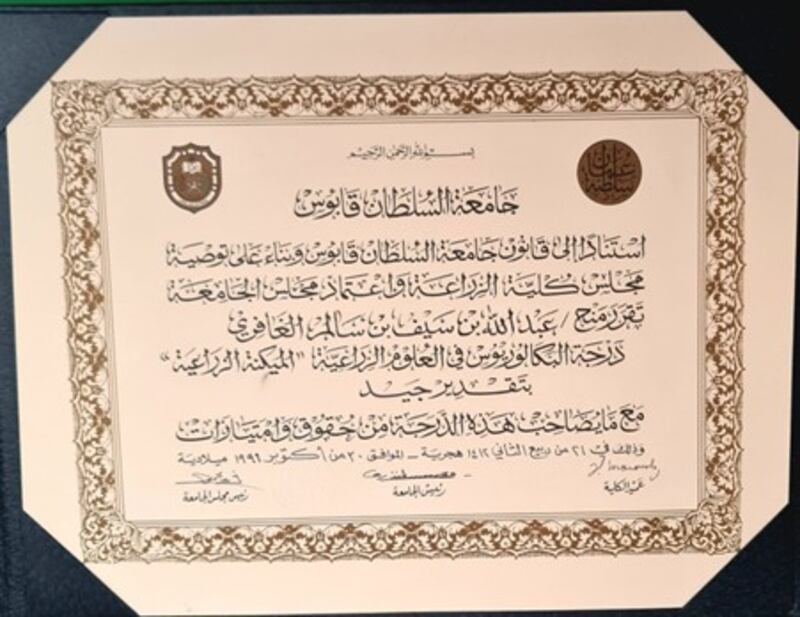 بسم الله الرحمن الرحيم
سلطنة عمان
جامعة السلطان قابوس
استنادًا إلى قانون جامعة السلطان قابوس وبناء على توصية
مجلس كلية الزراعة واعتماد مجلس الجامعة
تقرر منح / عبد الله بن سيف بن سالم الغافري
درجة البكالوريوس في العلوم الزراعية "الميكنة الزراعية"
بتقدير جيد
مع ما يصاحب هذه الدرجة من حقوق وامتيازات
وذلك في ٢١ من ربيع الثاني ١٤١٢ هجرية - الموافق ٣٠ من أكتوبر ١٩٩١ ميلادية
عميد الكلية
رئيس الجامعة
رئيس مجلس الجامعة